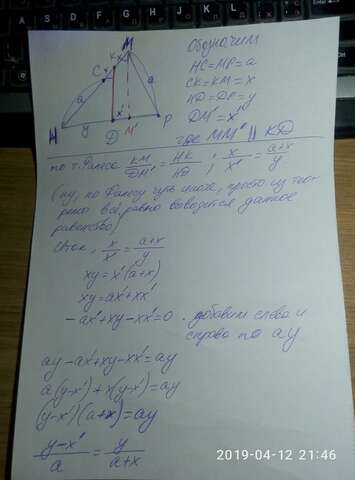 M
K
x
C
x
a
a
x'
H
y
D
M'
P
Обозначим
HC=MP=a
CK=KM=x
HD=DP=y
DM'=x'
где MM' || KD
по т. Фалеса KM/DM' = HK/HD ; x/x' = a+x/y
(ну, по Фалесу чуть иначе, просто из тео-
ремы всё равно выводится данное
равенство)
Итак, x/x' = a+x/y
xy=x'(a+x)
xy=ax'+xx'
-ax'+xy-xx'=0 - добавим слева и
справа по ay
ay-ax'+xy-xx'=ay
a(y-x')+x(y-x')=ay
(y-x')(a+x)=ay
y-x'/a = y/a+x
2019-04-12 21:46